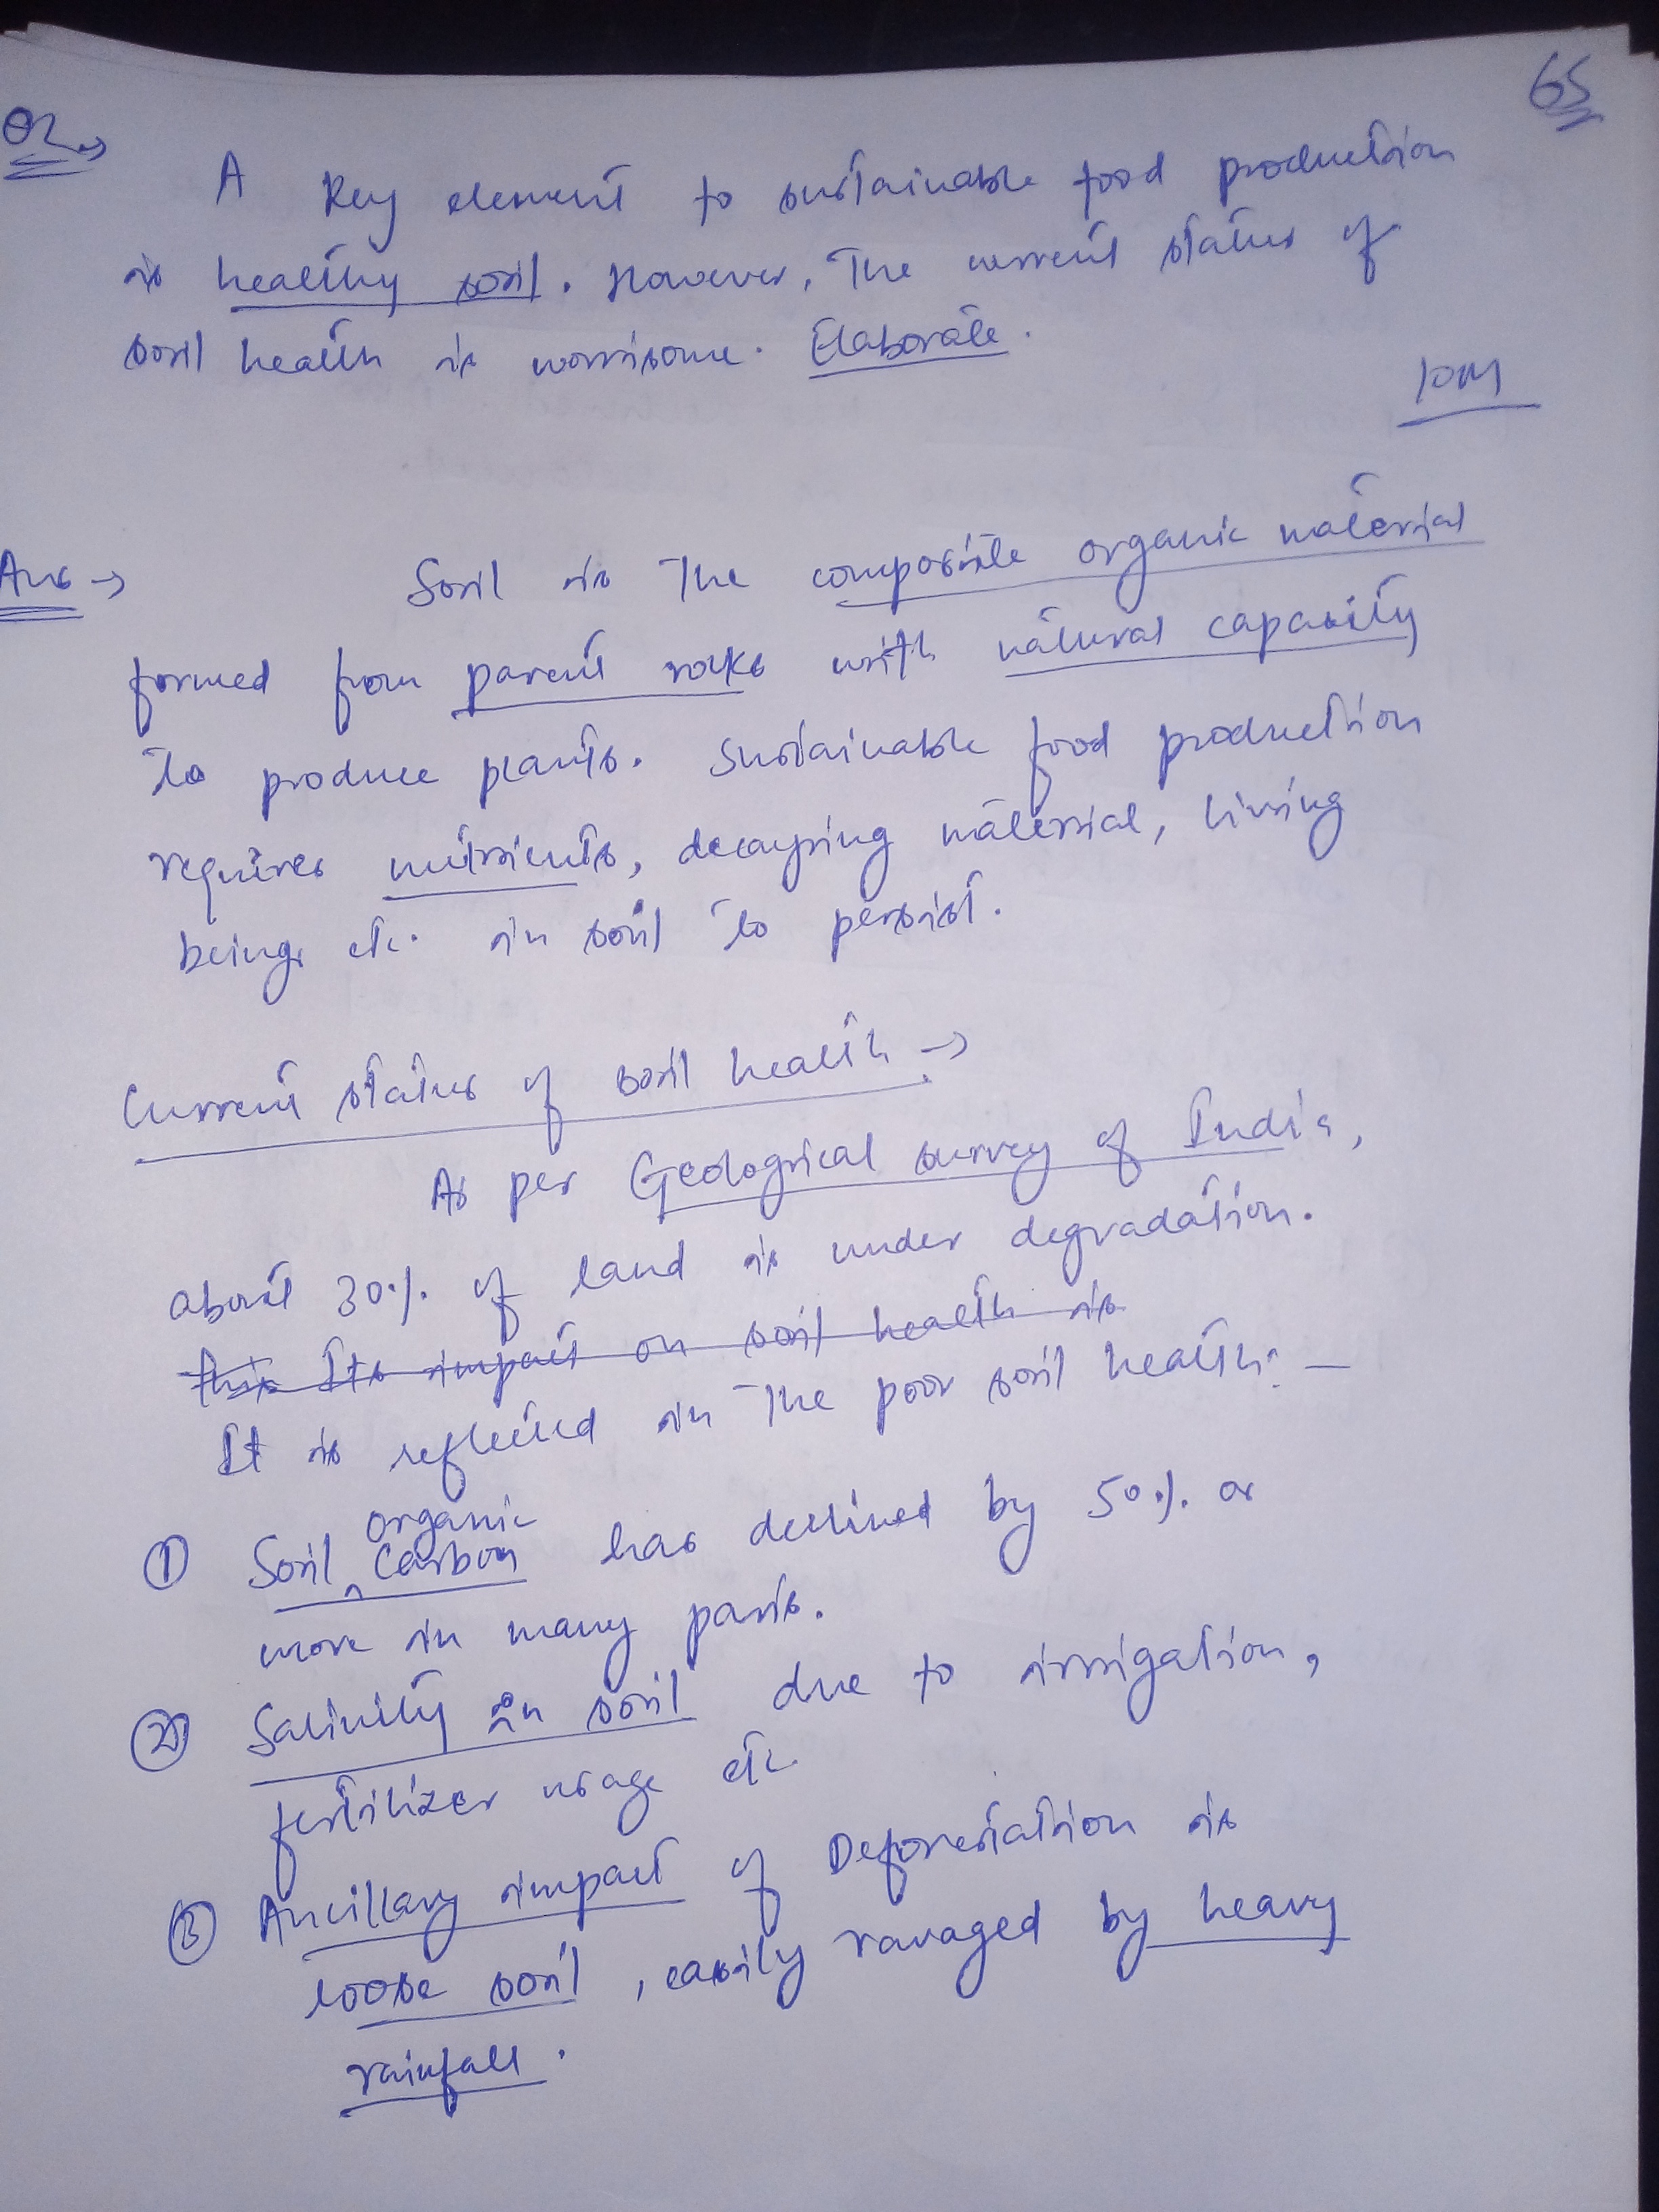 65
Q2→
A key element to sustainable food production
is healthy soil. However, The current status of
soil health is worrisome. Elaborate.
10M
Ans → Soil is The composite organic material
formed from parent rocks with natural capacity
to produce plants. Sustainable food production
requires nutrients, decaying material, living
beings etc. in soil to persist.
Current status of soil health →
As per Geological survey of India,
about 30% of land is under degradation.
This Its impact on soil health is
It is reflected in The poor soil health: —
① Soil organic Carbon has declined by 50% or
more in many parts.
② Salinity in soil due to irrigation,
fertilizer usage etc.
③ Ancillary impact of Deforestation is
loose soil, easily ravaged by heavy
rainfall.